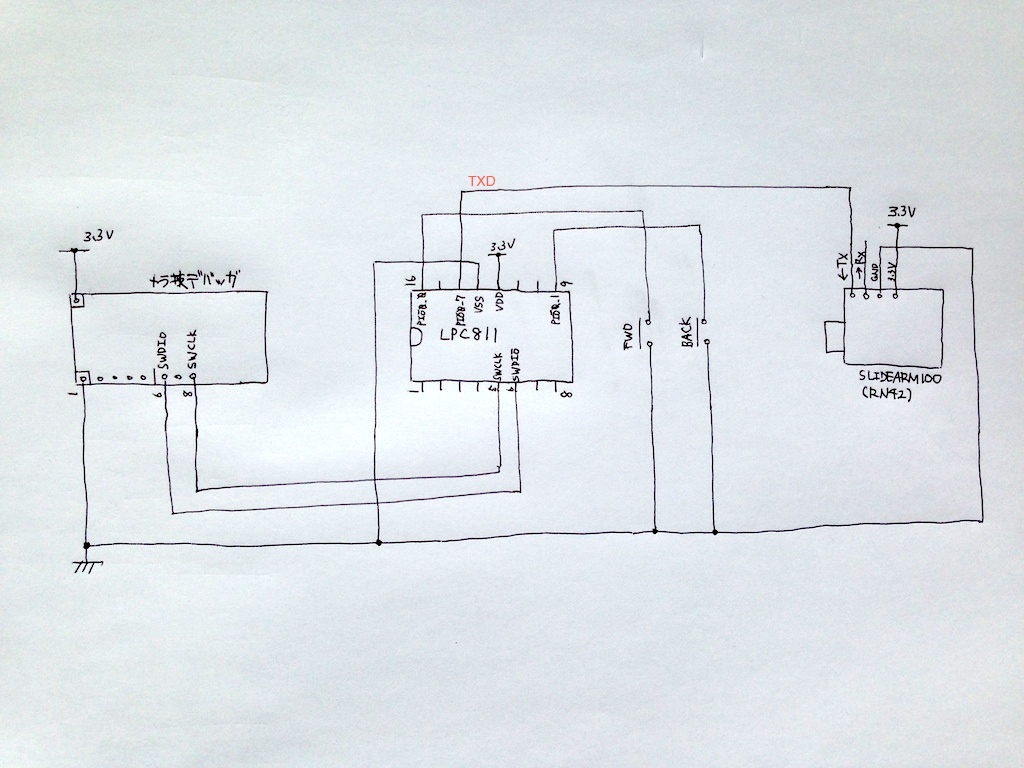 TXD
3.3V
メラ技デバッガ
SWDIO
SWCLK
1
6
8
3.3V
16
9
PIO0_0
PIO0_7
VSS
VDD
PIO0_1
LPC811
SWCLK
SWDIO
1
5
6
8
FWD
BACK
3.3V
←TX
→RX
GND
3.3V
SLIDEARM100
(RN42)